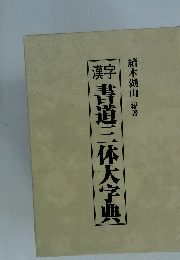 續木湖山 編著
漢字
書道三体大字典